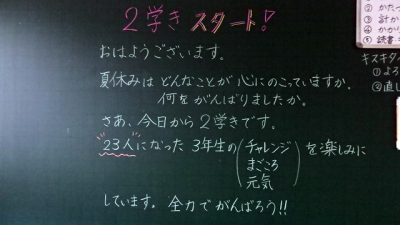 2学き スタート!
おはようございます。
夏休みは どんなことが 心にのこっていますか。
何をがんばりましたか。
さあ、今日から 2学きです。
23人になった 3年生の(チャレンジ
まごころ
元気)を楽しみに
しています。全力で がんばろう!!
② かたづ
③ 計か
④ かかり
⑤ 読書
キスキタイ
① よろ
② 直し